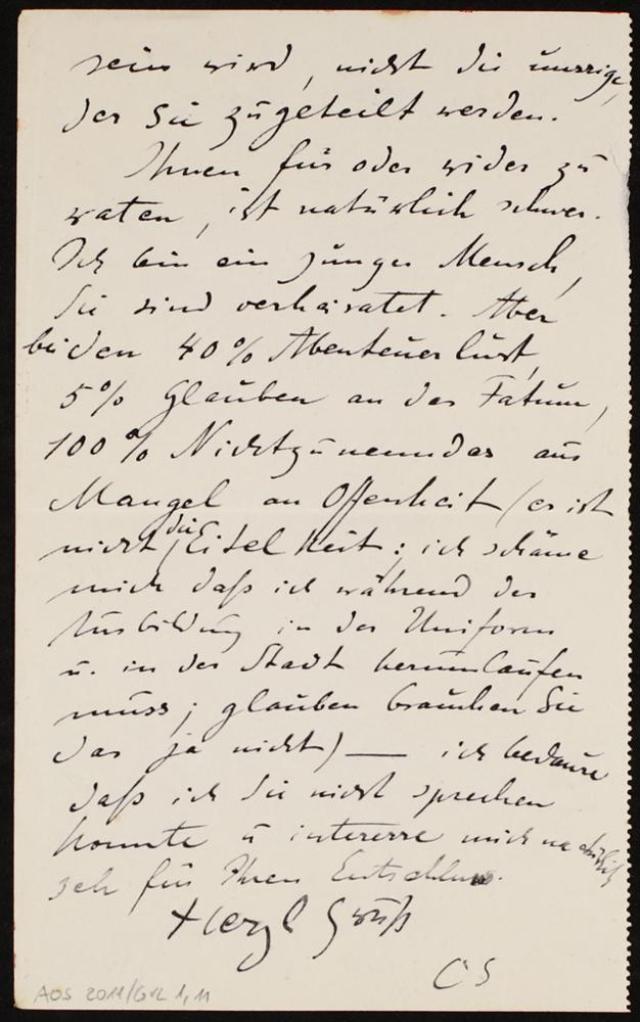 sein wird, nicht die unsrige,
der Sie zugeteilt werden.
Ihnen für oder wider zu
raten, ist natürlich schwer.
Ich bin ein junger Mensch,
Sie sind verheiratet. Aber
bei den 40% Abenteuerlust,
5% Glauben an das Fatum,
100% Nicht
Mangel an Offenheit (es ist
nicht die Eitelkeit; ich schäme
mich daß ich während der
Ausbildung in der Uniform
u. in der Stadt herumlaufen
muss; glauben brauchen Sie
das ja nicht) — ich bedaure
daß ich Sie nicht sprechen
konnte u interesse mich natürlich
sehr für Ihren Entschluss.
Herzl Gruß
CS
AOS 2011/GVL 1, 11